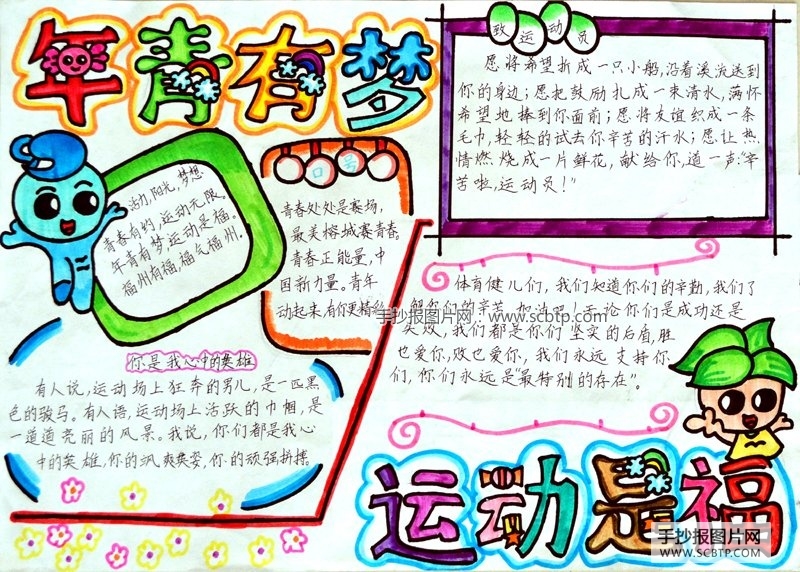 年青有梦
活力,阳光,梦想
青春有约,运动无限。
年青有梦,运动是福。
福州有福,福气福州.
口号
青春处处是赛场,
最美榕城赛青春。
青春正能量,中
国新力量。青年
动起来,有你更精彩
致运动员
愿将希望折成一只小船,沿着溪流送到
你的身边;愿把鼓励扎成一束清水,满怀
希望地捧到你面前;愿将友谊织成一条
毛巾,轻轻的试去你辛苦的汗水;愿让热
情燃烧成一片鲜花,献给你,道一声:“辛
苦啦,运动员!”
体育健儿们,我们知道你们的辛勤,我们了
解你们的辛苦,加油吧!无论你们是成功还是
失败,我们都是你们坚实的后盾,胜
也爱你,败也爱你,我们永远支持你
们,你们永远是“最特别的存在”。
手抄报图片网 www.scbtp.com
你是我心中的英雄
有人说,运动场上狂奔的男儿,是一匹黑
色的骏马。有人语,运动场上活跃的巾帼,是
一道道亮丽的风景。我说,你们都是我心
中的英雄,你的飒爽英姿,你的顽强拼搏。
运动是福
手抄报图片网
WWW.SCBTP.COM